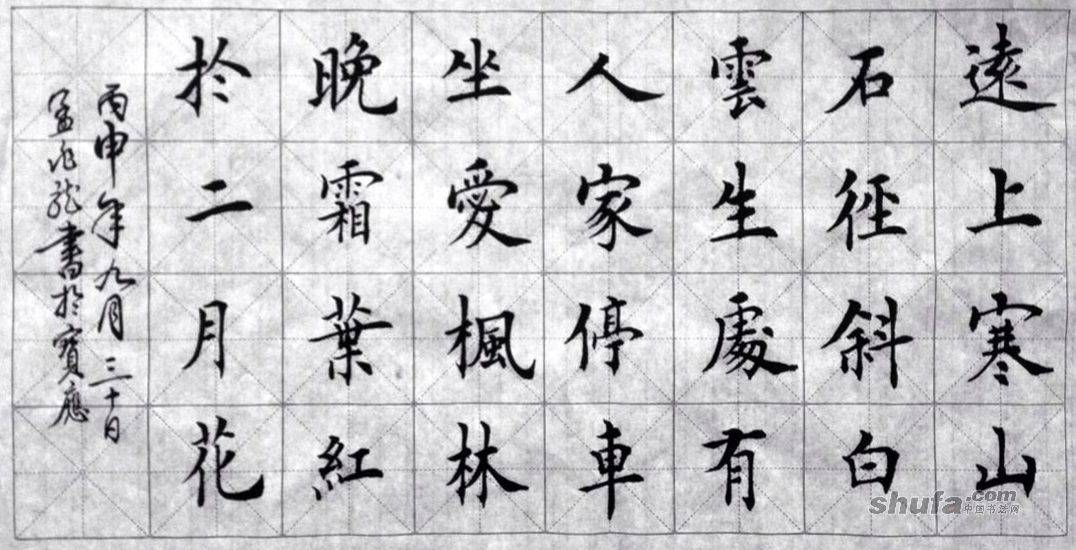 遠上寒山
石徑斜白
雲生處有
人家停車
坐愛楓林
晚霜葉紅
於二月花
丙申年九月三十日
孟兆龍書於寶應
shufa.com
中国书法网